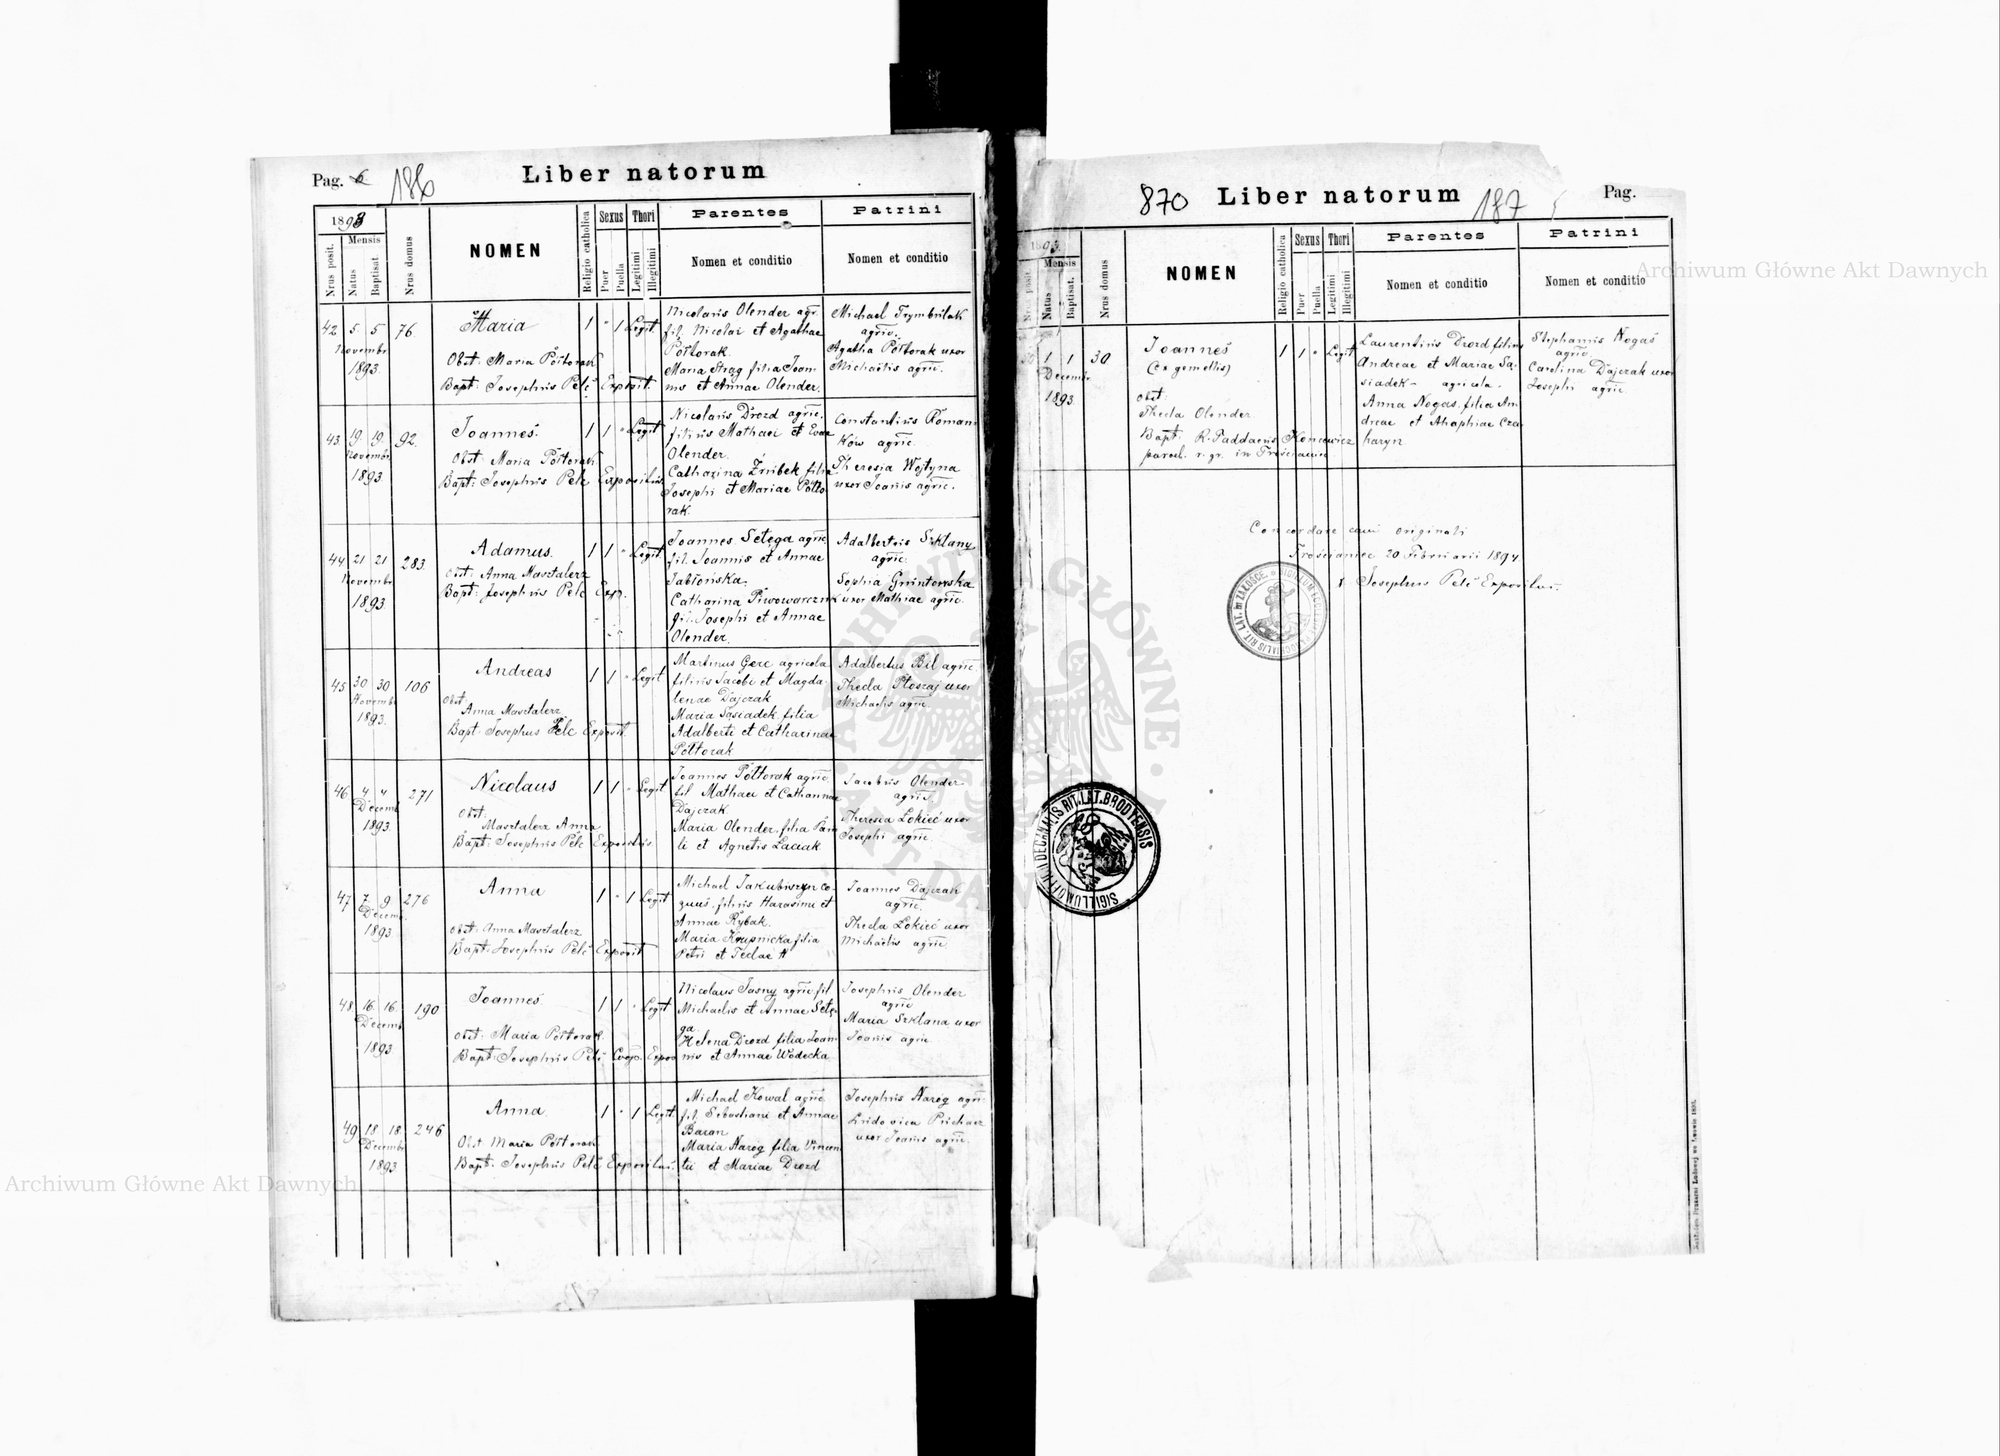 Pag. 6 186
Liber natorum
1893
Nrus posit.
Mensis
Natus
Baptisat.
Nrus domus
NOMEN
Religio catholica
Sexus
Puer
Puella
Thori
Legitimi
Illegitimi
Parentes
Nomen et conditio
Patrini
Nomen et conditio
42 5 5 76.
Novembr
1893.
Maria
Obst. Maria Półtorak
Bapt: Josephus Pelc Exposit.
1 " 1 Legit.
Nicolaus Olender agr.
fil. Nicolai et Agathae
Półtorak.
Maria Strąg filia Joan
nis et Annae Olender.
Michael Trymbulak
agric.
Agatha Półtorak uxor
Michaelis agric.
43. 19. 19. 92.
Novembr
1893.
Joannes.
Obst: Maria Półtorak
Bapt: Josephus Pelc Expositus
1 1 " Legit
Nicolaus Drozd agric.
filius Mathaei et Evae
Olender.
Catharina Zrubek filia
Josephi et Mariae Półto
rak.
Constantius Roman
ków agric.
Theresia Wojtyna
uxor Joanis agric.
44 21 21 283.
Novembr
1893.
Adamus.
Obst: Anna Masztalerz
Bapt: Josephus Pelc Exp.
1 1 " Legit
Joannes Setęga agric
fil. Joannis et Annae
Jabłońska.
Catharina Piwowarczuk
fil. Josephi et Annae
Olender.
Adalbertus Szklany
agric.
Sophia Gruntowska
uxor Mathiae agric.
45 30 30 106
Novembr
1893.
Andreas
Obst
Anna Masztalerz
Bapt: Josephus Pelc Exposit.
1 1 " Legit
Martinus Gerc agricola
filius Jacobi et Magda-
lenae Dajczak
Maria Sąsiadek filia
Adalberti et Catharinae
Półtorak
Adalbertus Bil agric.
Thecla Płoszaj uxor
Michaelis agric.
46 4 4 271
Decemb
1893.
Nicolaus
Obst.
Masztalerz Anna
Bapt: Josephus Pelc Expositus.
1 1 " Legit
Joannes Półtorak agric
fil Mathaei et Catharinae
Dajczak
Maria Olender filia Pau
li et Agnetis Laciak
Jacobus Olender
agric.
Theresia Łokieć uxor
Josephi agric.
47 7 9 276
Decemb
1893
Anna
Obst: Anna Masztalerz
Bapt: Josephus Pelc Exposit
1 " 1 Legit
Michael Jakubiszyn co-
quus filius Harasimi et
Annae Rybak.
Maria Krupnicka filia
Petri et Teclae
Joannes Dajczak
agric.
Thecla Łokieć uxor
Michaelis agric
48. 16. 16. 190
Decemb
1893
Joannes
Obst: Maria Półtorak
Bapt: Josephus Pelc
1 1 " Legit
Nicolaus Jasny agric fil
Michaelis et Annae Setę-
ga.
Helena Drozd filia Joan
nis et Annae Wodecka
Josephus Olender
agric
Maria Szklana uxor
Joanis agric
49 18 18 246
Decembr
1893
Anna
Obst Maria Półtorak
Bapt: Josephus Pelc Expositus.
1 " 1 Legit.
Michael Kowal agric
fil. Sebastiani et Annae
Baran
Maria Naróg filia Vincen
tii et Mariae Drozd
Josephus Naróg agric.
Ludovica
uxor Joanis agric.
870 Liber natorum 187 Pag.
1893.
Mensis
Natus
Baptisat.
Nrus domus
NOMEN
Religio catholica
Sexus
Puer
Puella
Thori
Legitimi
Illegitimi
Parentes
Nomen et conditio
Patrini
Nomen et conditio
1 1 30
Decembr
1893
Joannes
(ex gemellis)
Obst:
Thecla Olender
Bapt: R. Taddaeus Koncewicz
paroch. r. gr. in Trościaniec
1 1 " Legit
Laurentius Drozd filius
Andreae et Mariae Są-
siadek - agricola.
Anna Nogaś filia An
dreae et Ahaphiae Cza
haryn.
Stephanus Nogaś
agric.
Carolina Dajczak uxor
Josephi agric
Concordare cum originali
Trościaniec 20 Februarii 1894
X Josephus Pelc Expositus.
SIGILLUM RIT. LAT. in ZAŁOŹCE
SIGILLUM OFFICII DECANALIS RIT. LAT. BRODTENSIS
Archiwum Główne Akt Dawnych
Archiwum Główne Akt Dawnych
ARCHIWUM GŁÓWNE AKT DAWNYCH